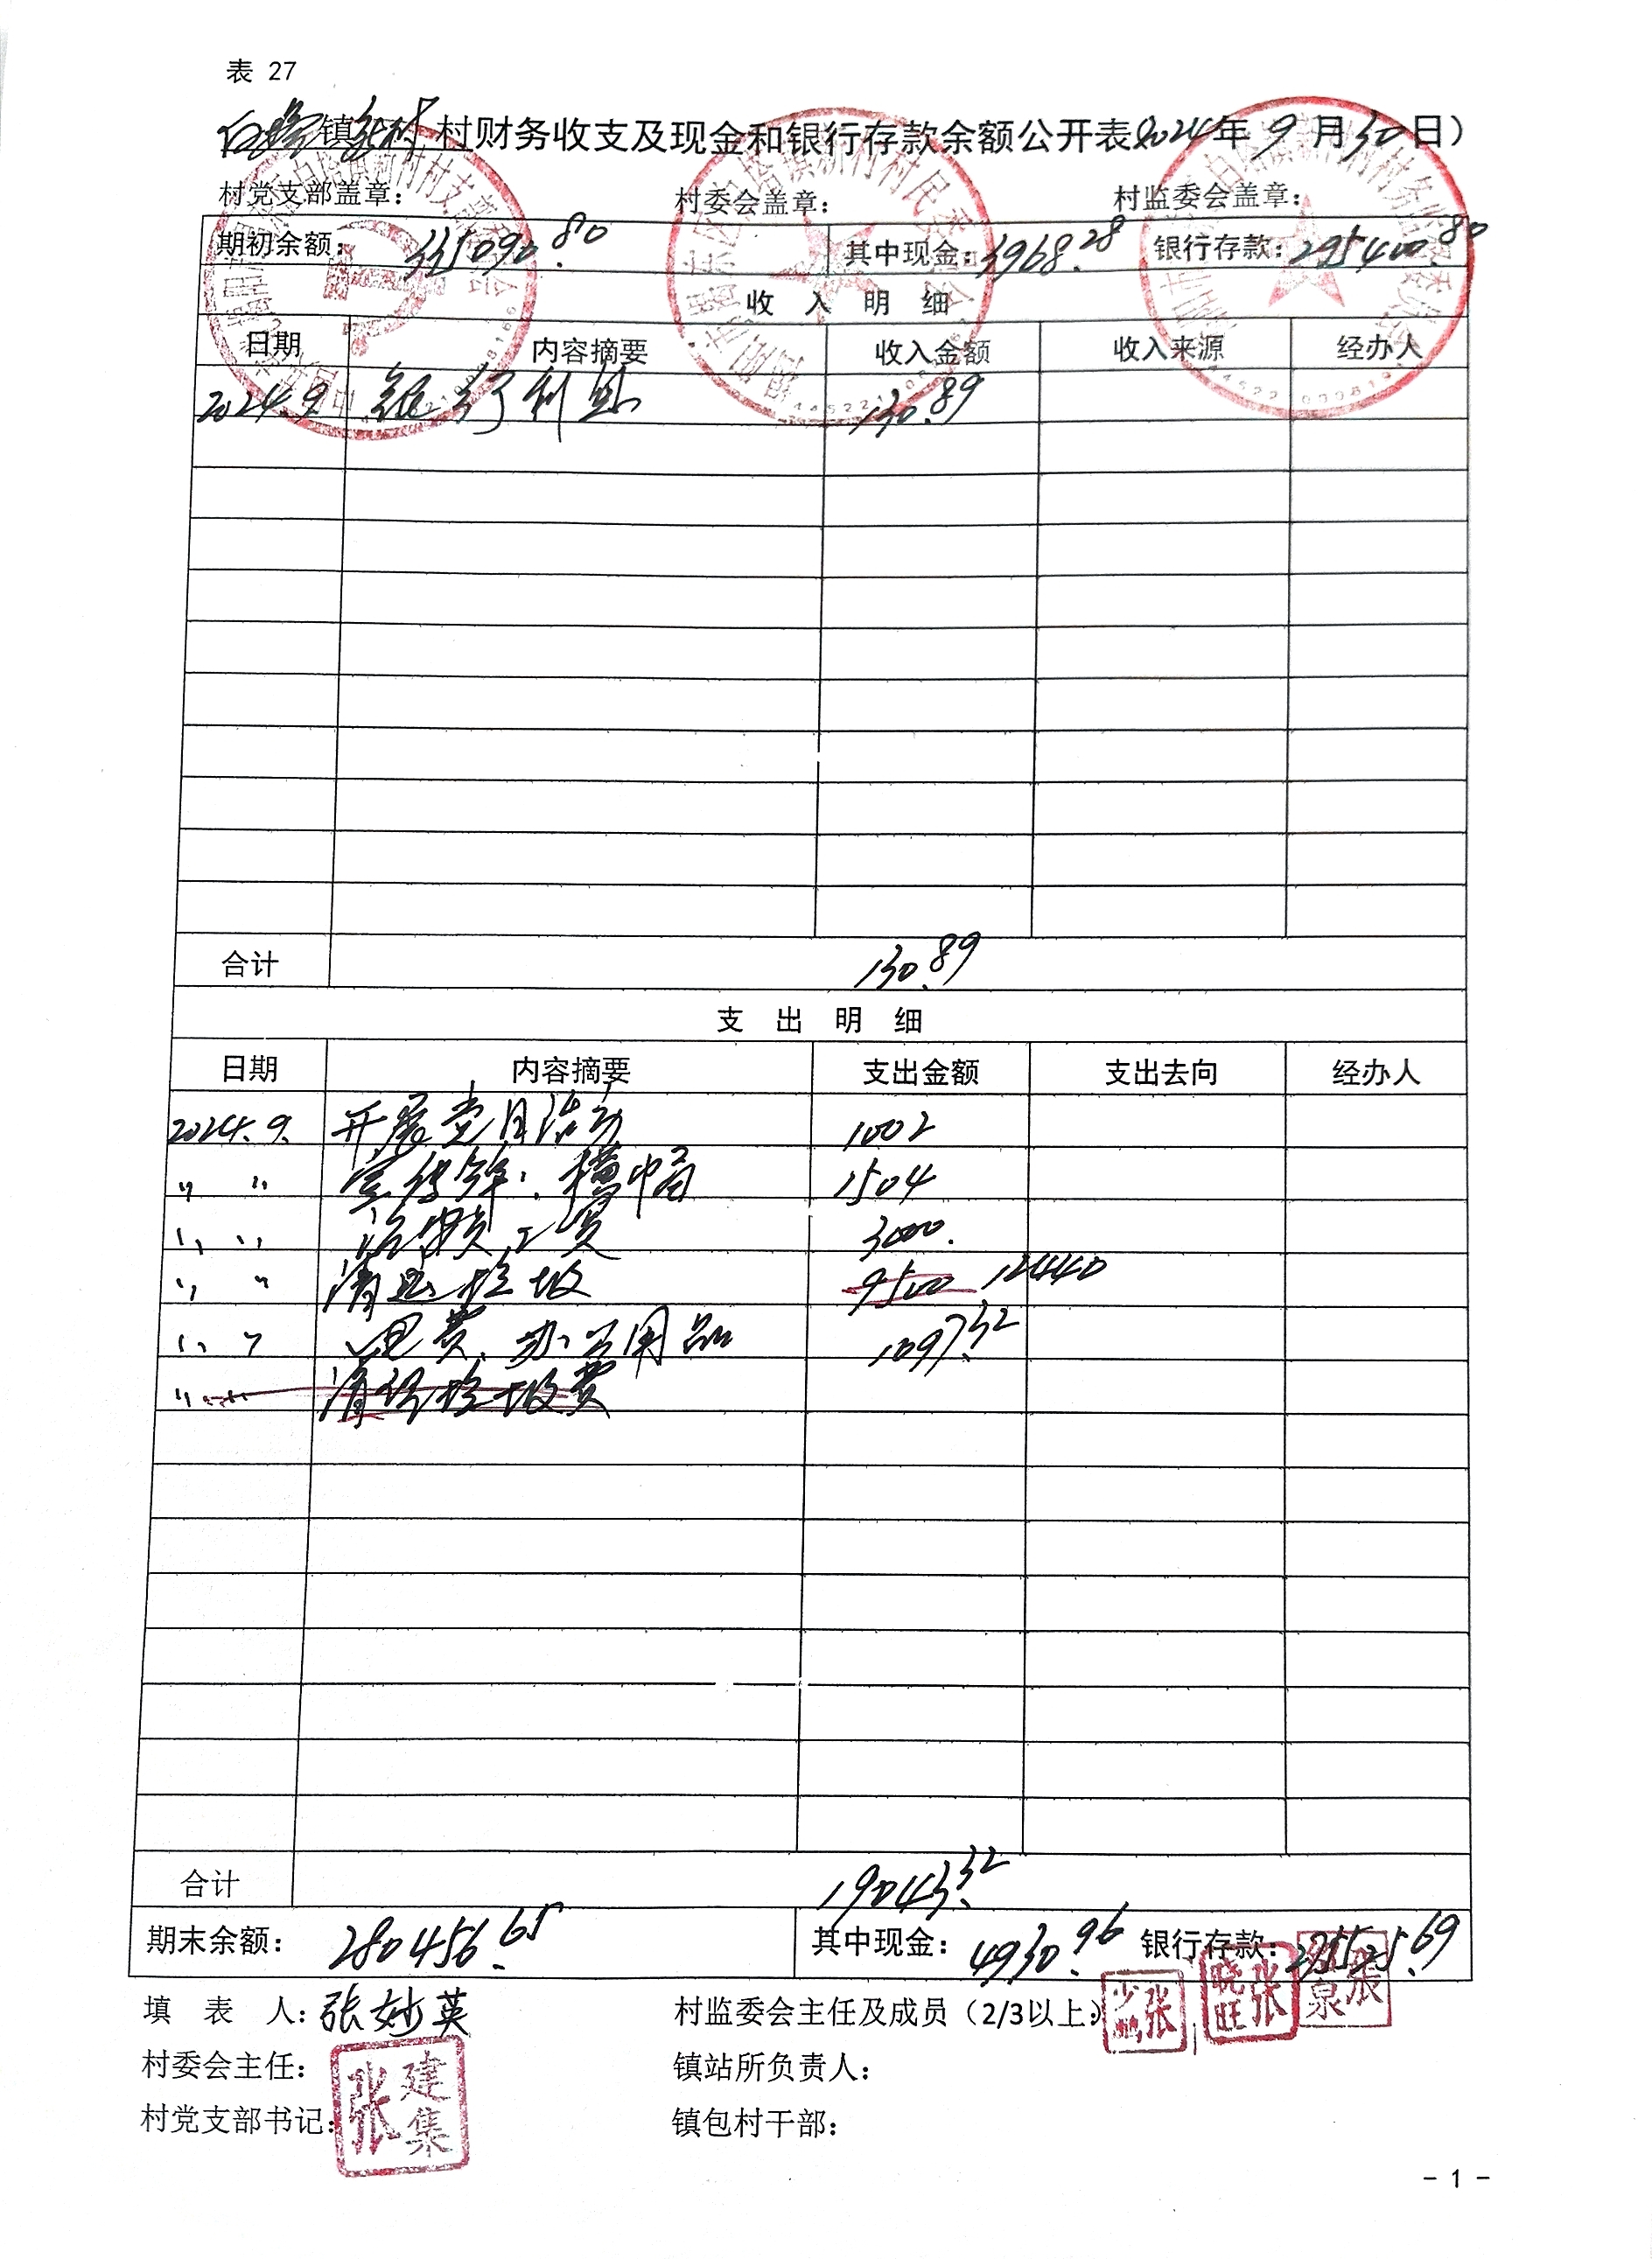 表 27
白塔镇新村村财务收支及现金和银行存款余额公开表2024年9月30日）
村党支部盖章： 村委会盖章： 村监委会盖章：
期初余额： 335090.80 其中现金：3968.28 银行存款：295400.80
收 入 明 细
日期 内容摘要 收入金额 收入来源 经办人
2024.9. 银行利息 130.89
合计 130.89
支 出 明 细
日期 内容摘要 支出金额 支出去向 经办人
2024.9. 开展党日活动 1002
〃 〃 宣传 横巾 1504
〃 〃 工资 3000.
〃 〃 清运垃圾 9500 12440
〃 〃 电费、办公用品 1097.32
〃 〃 清理垃圾费
合计 19043.32
期末余额： 280456.65 其中现金： 4930.96 银行存款：275525.69
填 表 人：张妙英 村监委会主任及成员（2/3以上： 张少鹏 张晓旺 张泉
村委会主任： 镇站所负责人：
张建集
村党支部书记： 镇包村干部：
- 1 -